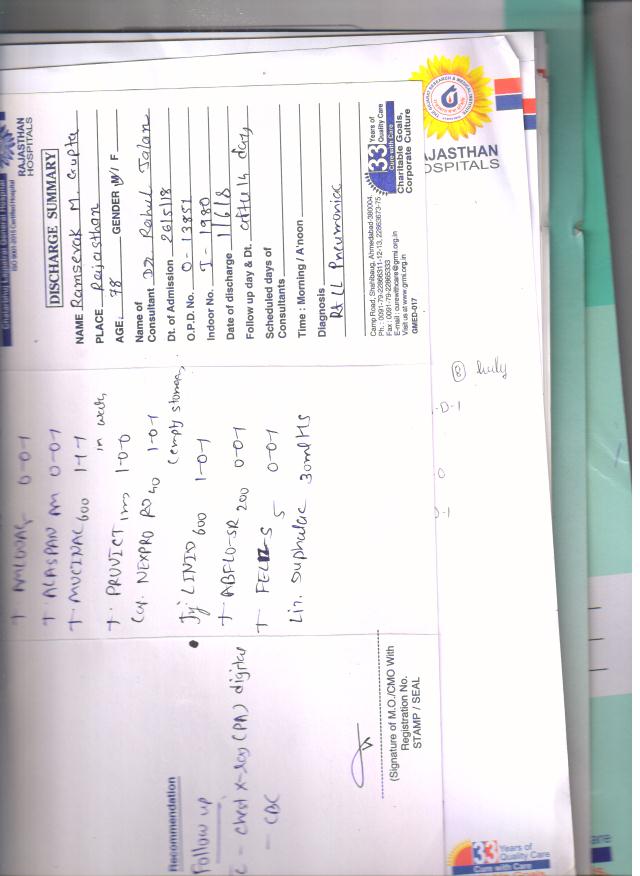 Charitable General Hospital
ISO 9001:2015 Certified Hospital
RAJASTHAN
HOSPITALS
DISCHARGE SUMMARY
NAME Ramsevak M. Gupta
PLACE Rajasthan
AGE. 78 GENDER M/ F
Name of
Consultant Dr. Rahul Jalan
Dt. of Admission 26/5/18
O.P.D. No. O-13851
Indoor No. I-1980
Date of discharge 1/6/18
Follow up day & Dt. after 4 day
Scheduled days of
Consultants
Time : Morning / A'noon
Diagnosis
Rt LL Pneumonia
33 Years of
Quality Care
Cure with Care
Charitable Goals,
Corporate Culture
Camp Road, Shahibaug, Ahmedabad-380004.
Fax : 0091-79-22865333
Visit us at www.grmi.org.in
GMED-017
RAJASTHAN
HOSPITALS
0-0-1
T. ALASPAN AM 0-0-1
T. MUCINAC 600 1-1-1
T. PRUVICT 1mg 1-0-0
Cap. NEXPRO RD 40 1-0-1
(empty stomach)
LINID 600 1-0-1
T ABFLO-SR 200 0-0-1
T 5 0-0-1
Duphalac 30ml HS
Recommendation
Follow up
C - chest x-ray (PA) digital
- CBC
(Signature of M.O./CMO With
Registration No.
STAMP / SEAL
33 Years of
Quality Care
Cure with Care